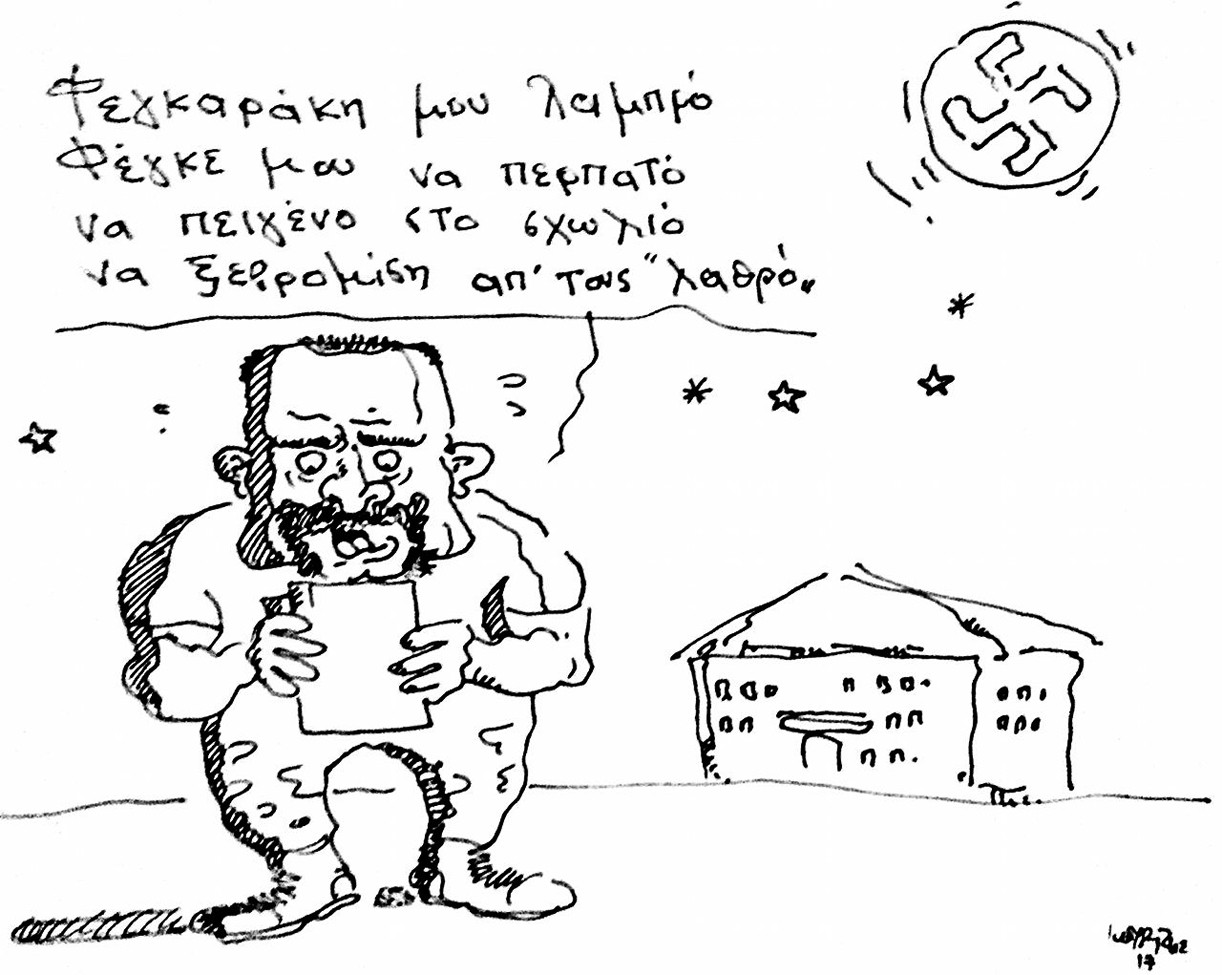 Φεγκαράκη μου λαμπρό
Φέγκε μου να περπατό
να πειγένο στο σχωλιό
να ξεβρομίση απ' τους "λαθρό„
17